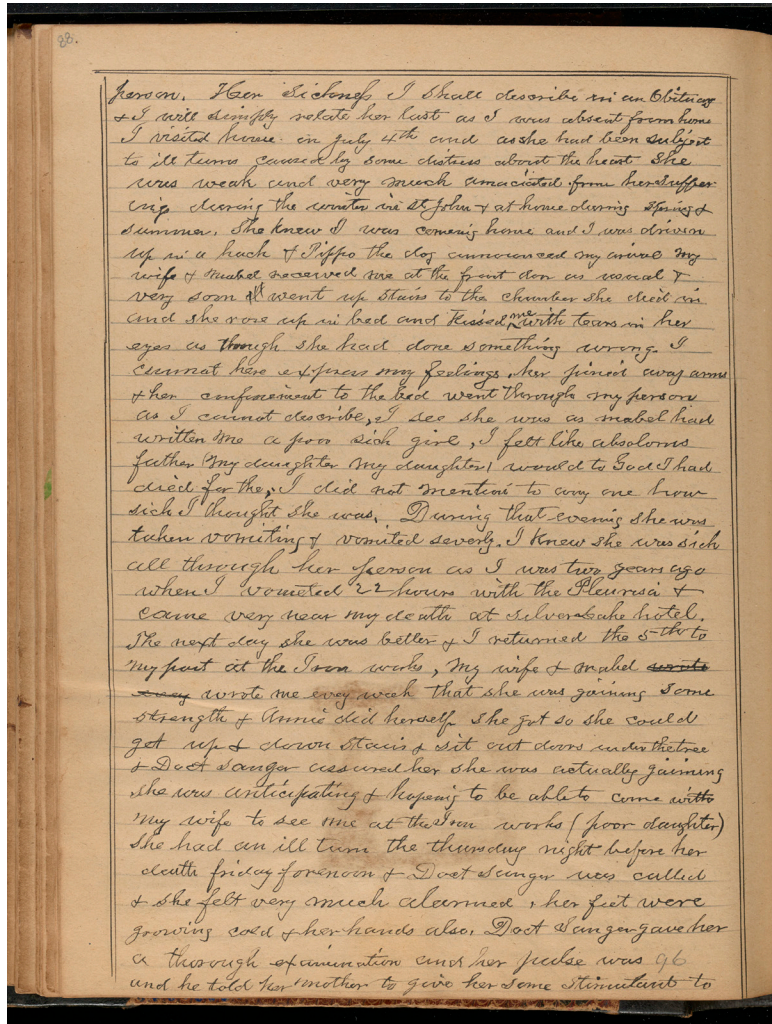 88.
person. Her Sickness I Shall describe in an Obituary
& I will simply relate her last as I was absent from home
I visited house on July 4th and as she had been subject
to ill turns caused by some distress about the heart She
was weak and very much amaciated from her suffer
ing during the winter in St John & at home during Spring &
Summer. She knew I was coming home and I was driven
up in a hack & Pippo the dog announced my arival My
wife & Mabel received me at the front door as usual &
very soon I went up Stairs to the chamber she died in
and she rose up in bed and Kissed me with tears in her
eyes as though she had done something wrong. I
cannot here express my feelings, her pined away arms
& her confinement to the bed went through my person
as I cannot describe, I see she was as Mabel had
written me a poor sick girl, I felt like absoloms
father (My daughter My daughter) would to God I had
died for the, I did not mention to any one how
sick I thought she was. During that evening she was
taken vomiting & vomited severly. I knew she was sick
all through her person as I was two years ago
when I vometed 22 hours with the Pleurisa &
came very near my death at Silver Lake hotel.
The next day she was better & I returned the 5th to
my post at the Iron works, My wife & Mabel wrote
every wrote me evry week that she was gaining some
strength & Annie did herself she got so she could
get up & down Stairs & sit out doors under the tree
& Doct Sanger assured her she was actually gaining
she was anticipating & hoping to be able to come with
my wife to see me at the Iron works (poor daughter)
She had an ill turn the thursday night before her
death friday forenoon & Doct Sanger was called
& she felt very much alarmed, her feet were
growing cold & her hands also. Doct Sanger gave her
a thorough examination and her pulse was 96
and he told her mother to give her some Stimulant to